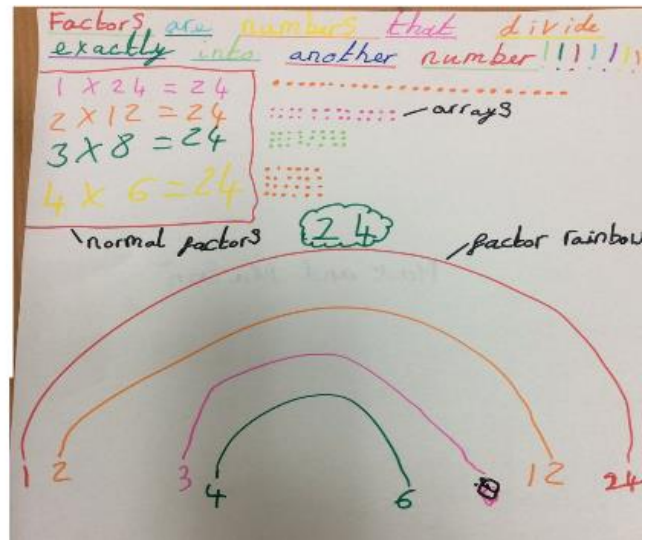 Factors are numbers that divide
exactly into another number!!!!!!!
1 × 24 = 24
2 × 12 = 24
arrays
3 × 8 = 24
4 × 6 = 24
normal factors
24
factor rainbow
1 2 3 4 6 12 24